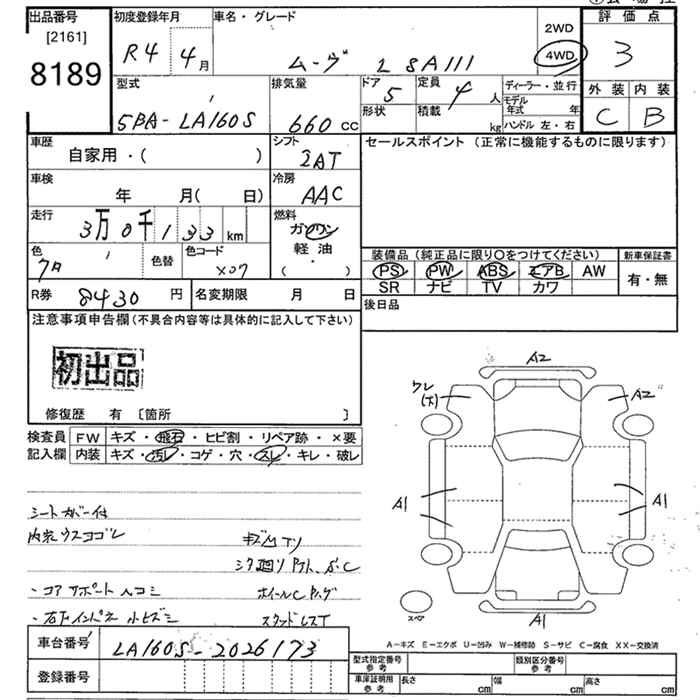 出品番号 初度登録年月 車名・グレード 評価点
[2161] R4 4月 ムーヴ L SA III 2WD 4WD 3
8189
型式 排気量 ドア 5 定員 4 人 ディーラー・並行 外装 内装
5BA-LA160S 660 cc 形状 積載 kg モデル年式 年 C B
ハンドル 左・右
車歴 シフト セールスポイント (正常に機能するものに限ります)
自家用・( ) 2AT
車検 冷房
年 月(日) AAC
走行 燃料
3万0千133 km ガソリン
軽油
( ・ )
色 色替 色コード 装備品(純正品に限り○をつけてください) 新車保証書
クロ X07 PS PW ABS エアB AW 有・無
SR ナビ TV カワ
R券 8430 円 名変期限 月 日 後日品
注意事項申告欄(不具合内容等は具体的に記入して下さい)
初出品
修復歴 有 〔箇所 〕
検査員 FW キズ・飛石・ヒビ割・リペア跡・×要
記入欄 内装 キズ・汚レ・コゲ・穴・スレ・キレ・破レ
A2
A2
A1 A1
A1
シートカバー付
内装ウスヨゴレ
・コアサポート凹コミ
スペア
A-キズ E-エクボ U-凹み W-補修跡 S-サビ C-腐食 XX-交換済
車台番号 LA160S-2026173
登録番号
型式指定番号 参考 類別区分番号 参考
車庫証明用 参考 長さ cm 幅 cm 高さ cm